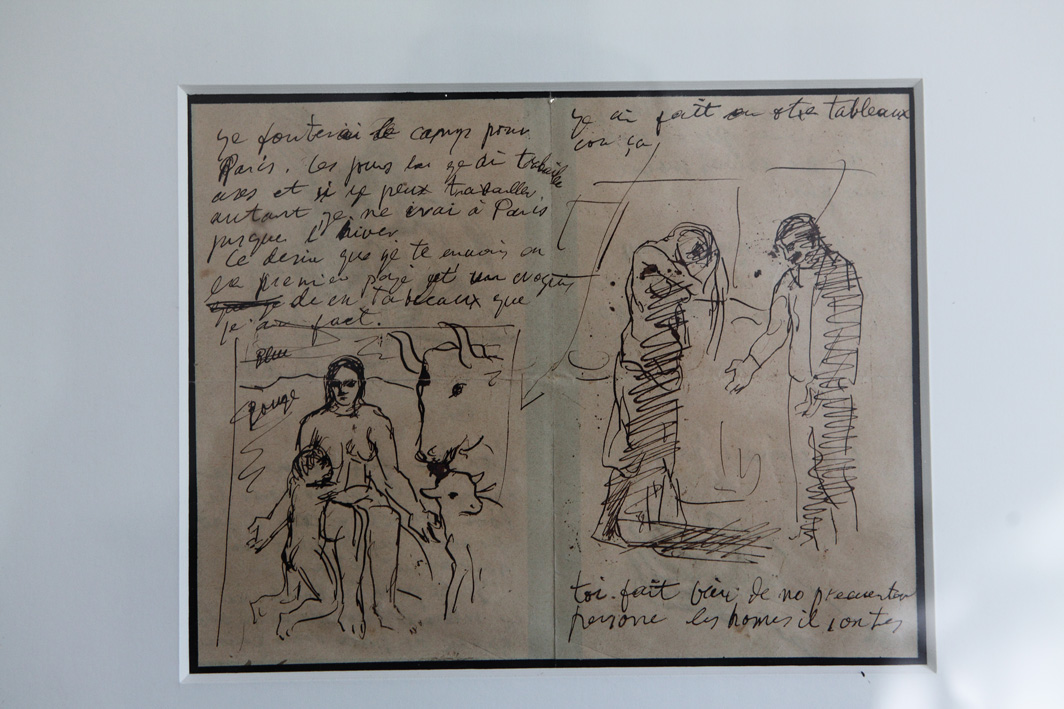 ge fouterai le camps pour
Paris. les jours la ge di travaille
ases et si ge peux travailler
autant je ne irai à Paris
jusque l'hiver
Ce desin que ge te envois en
la premier paje et un croquis
de en tableaux que
je ai fact.
Bleu
Rouge
ge ai fait un otre tableaux
com ça,
toi. fait bien de no
personne les homes il